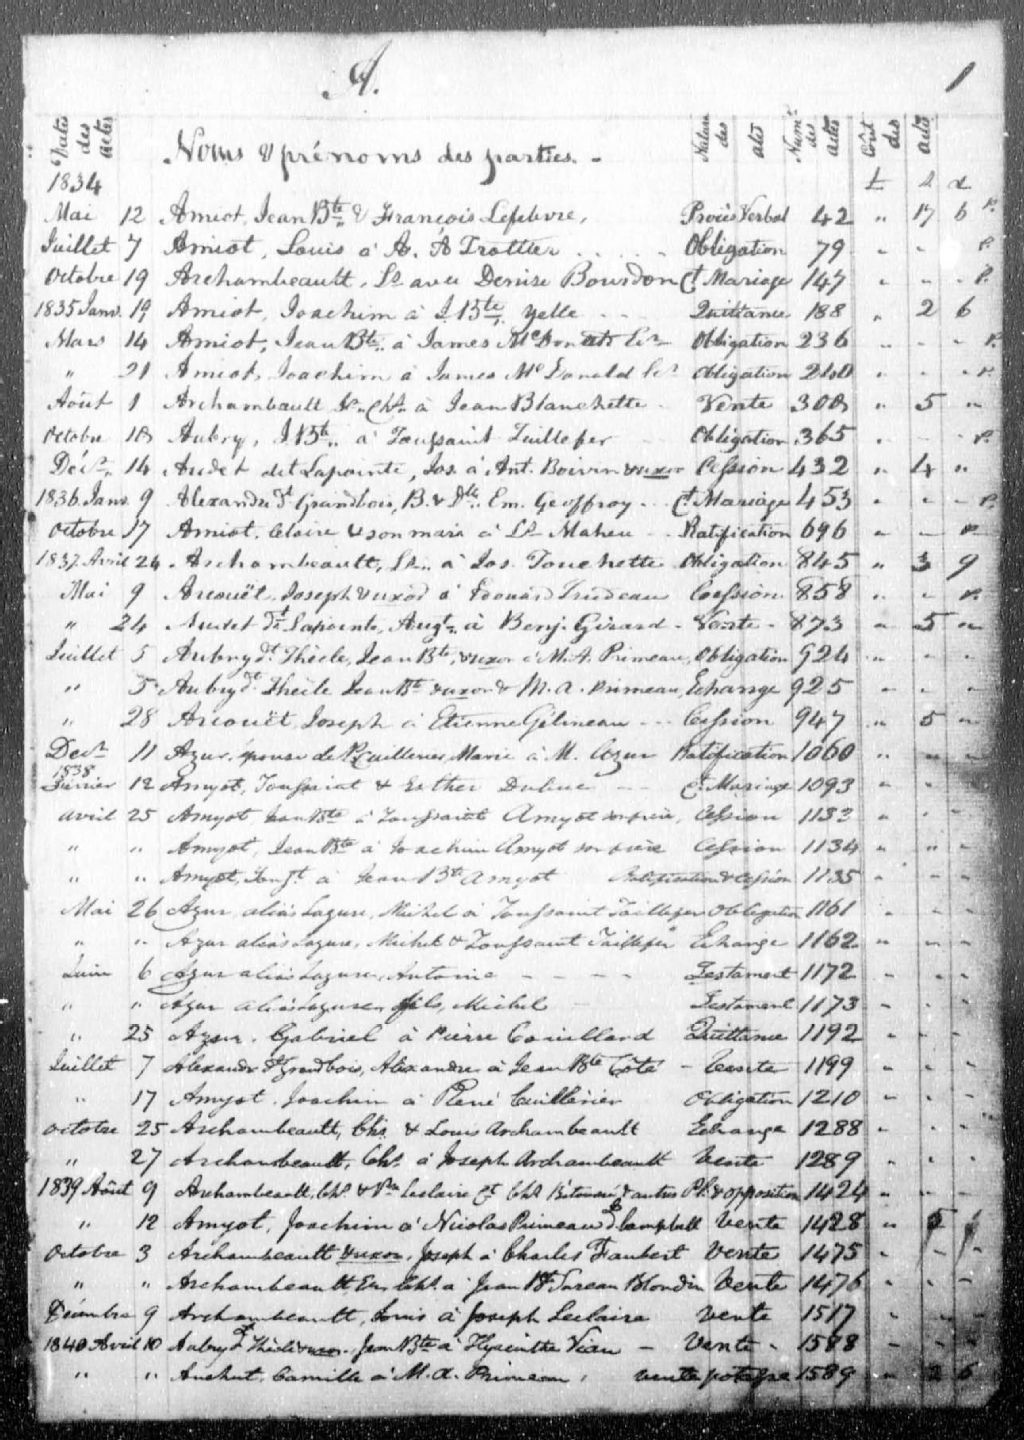 A. 1
Dates des actes Noms & prénoms des parties. - Nature des actes Num.os des actes Coût des actes
1834 £ s d
Mai 12 Amiot, Jean Bte & François Lefebvre, Procès Verbal 42 " 17 6 P.
Juillet 7 Amiot, Louis à A. A Trottier . . . . . Obligation 79 - - P.
Octobre 19 Archambeault, Ls avec Denise Bourdon Ct Mariage 147 - - - P.
1835 Janv. 19 Amiot, Joachim à J. Bte Yelle - - - Quittance 188 " 2 6
Mars 14 Amiot, Jean Bte à James McDonald Obligation 236 - - - P.
" 21 Amiot, Joachim à James McDonald Obligation 240 - - - P.
Août 1 Archambault à Jean Blanchette - Vente 308 " 5 "
Octobre 18 Aubry, J. Bte à Toussaint Tuillefer - Obligation 365 - - - P.
Déc. 14 Audet dit Lapointe, Jos. à Ant. Boivin & uxor Cession 432 " 4 "
1836 Janv. 9 Alexandre dt Grandbois, B. & Dlle Em. Geoffroy - - - Ct Mariage 453 " - - P.
Octobre 17 Amiot, Claire & son mari à Ls Maheu - - Ratification 696 - - P.
1837 Avril 24 Archambeault, Ls. à Jos. Touchette Obligation 845 " 3 9
Mai 9 Arcouët, Joseph & uxor à Edouard Trudeau Cession 858 " - P.
" 24 Audet dt Lapointe, Augt. à Benj. Girard - Vente - 873 " 5 "
Juillet 5 Aubry dt Thècle, Jean Bte, & uxor à M. A. Primeau, Obligation 924 - - -
" 5 Aubry dt Thècle Jean Bte & uxor & M. A. Primeau, Echange 925 - - -
" 28 Arcouët, Joseph à Etienne Gélineau - - - Cession 947 " 5 "
Decr 11 Azur, épouse de Cuillerier, Marie à M. Azur Ratification 1060 " - -
1838
Février 12 Amyot, Toussaint & Esther - - Ct. Mariage 1093 - - -
Avril 25 Amyot Jean Bte à Toussaint Amyot son frère, Cession 1133 - - -
" " Amyot, Jean Bte à Joachim Amyot son frère Cession 1134 " " -
" " Amyot, Tousst. à Jean Bte Amyot Ratification & Cession 1135 - - -
Mai 26 Azur aliàs Lazure, Michel à Toussaint Taillefer Obligation 1161 - - -
" " Azur aliàs Lazure, Michel & Toussaint Taillefer Echange 1162 " - -
Juin 6 Azur aliàs Lazure, Antoine - - - - Testament 1172 - - -
" " Azur aliàs Lazure, fils, Michel - Testament 1173 - - -
" 25 Azur, Gabriel à Pierre Couillard Quittance 1192 - - -
Juillet 7 Alexandre dt Grandbois, Alexandre à Jean Bte Côté - Vente 1199 - - -
" 17 Amyot, Joachim à René Cuillèrier Obligation 1210 - - -
Octobre 25 Archambeault, Chs. & Louis Archambeault Echange 1288 - - -
" 27 Archambeault, Chs. à Joseph Archambeault Vente 1289 - - -
1839 Août 9 Archambeault, Chs. & Leclaire & autres & opposition 1424 - - -
" 12 Amyot, Joachim à Nicolas Primeau dt Campbell Vente 1428 " 5
Octobre 3 Archambeault & uxor, Joseph à Charles Faubert Vente 1475 - - -
" " Archambeault Chs. à Jean Bte Blondin Vente 1476 - - -
Décembre 9 Archambeault, Louis à Joseph Leclaire Vente 1517 - - -
1840 Avril 10 Aubry dt Thècle & uxor, Jean Bte à Hyacinthe Viau - Vente - 1588 - - -
" " Camille à M. A. Primeau, vente 1589 " 2 6